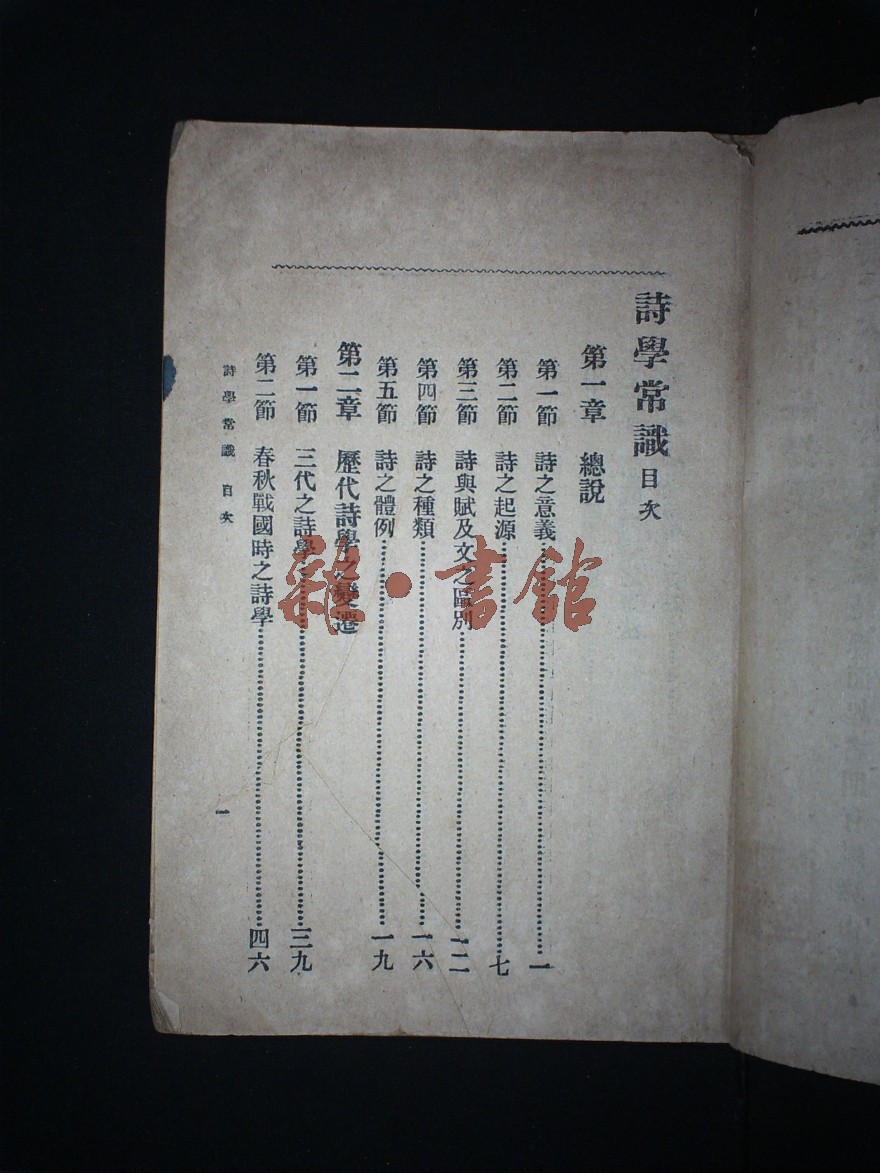 詩學常識目次
第一章 總說
第一節 詩之意義……一
第二節 詩之起源……七
第三節 詩與賦及文之區別……一二
第四節 詩之種類……一六
第五節 詩之體例……一九
第二章 歷代詩學之變遷
第一節 三代之詩學……三九
第二節 春秋戰國時之詩學……四六
詩學常識 目次
一
雜·書館